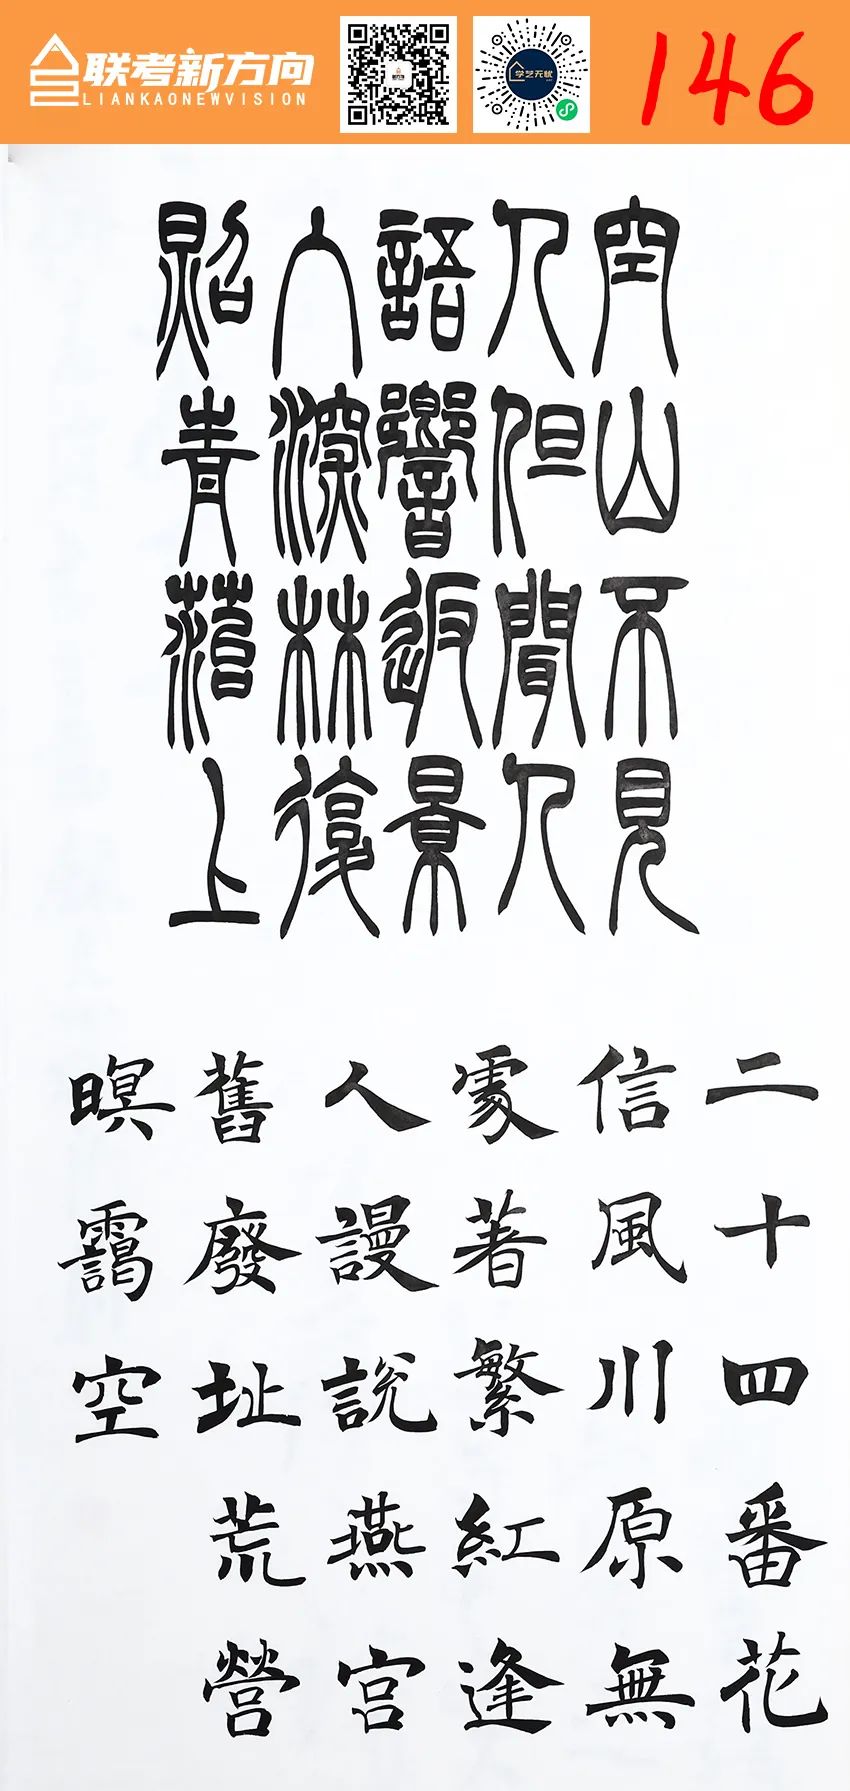 联考新方向
LIANKAONEWVISION
学艺无忧
146
空山不見
人但聞人
語響返景
入深林復
照青菭上
二十四番花
信風川原無
處著繁紅逢
人謾說燕宮
舊廢址荒營
暝靄空